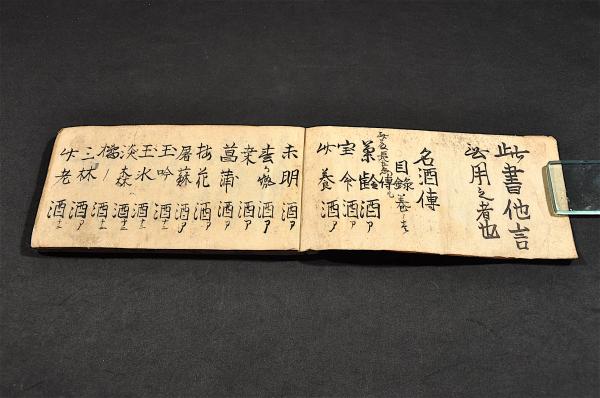 此書他言
用之者也
名酒傳
目録巻
菊齢酒
宝命酒
養酒
未明酒
酒
桑酒
菖蒲酒
梅花酒
屠蘇酒
玉吟酒
玉水酒
淡森酒
橘酒
三林酒
老酒